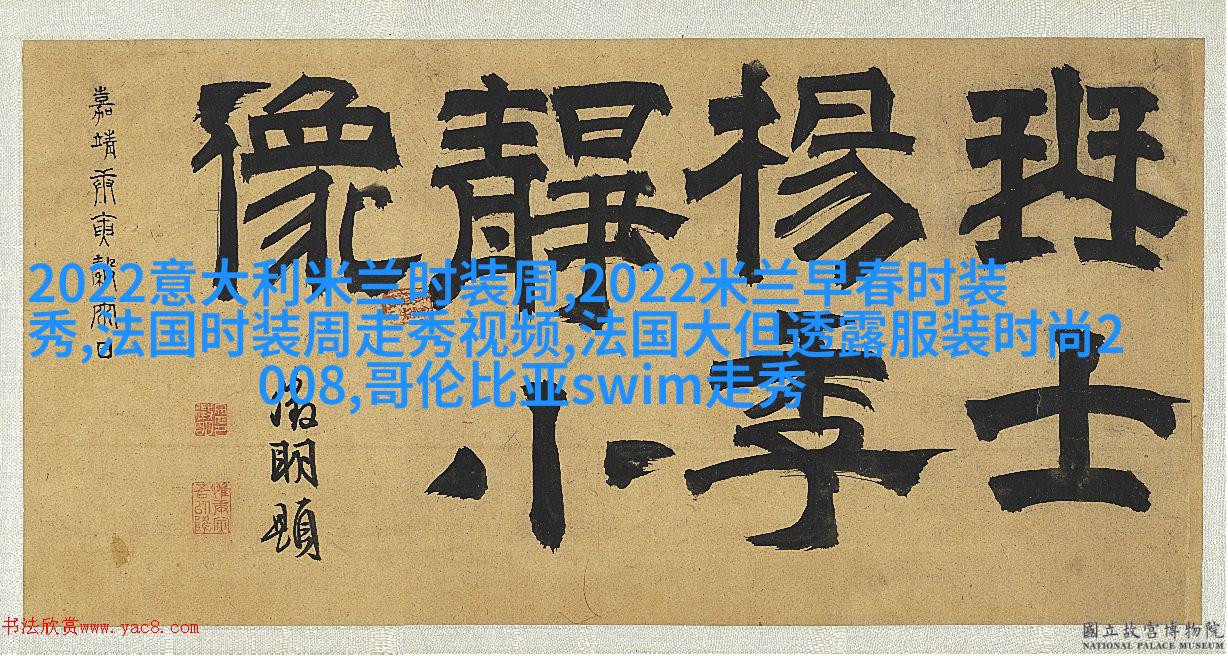 琴士
楊季
靜小
像
嘉靖庚寅穀雨日
徵明題
2022意大利米兰时装周,2022米兰早春时装
秀,法国时装周走秀视频,法国大但透露服装时尚2
008,哥伦比亚swim走秀
书法欣赏www.yac8.com
國立故宮博物院
NATIONAL PALACE MUSEUM